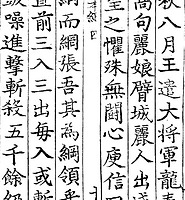 秋八月王遣大將軍龍春
高句麗娘臂城麗人出
望之懼殊無鬪心庾信曰
綱而綱張吾其爲綱領
直前三入三出毎入或斬
鼓噪進擊斬殺五千餘級